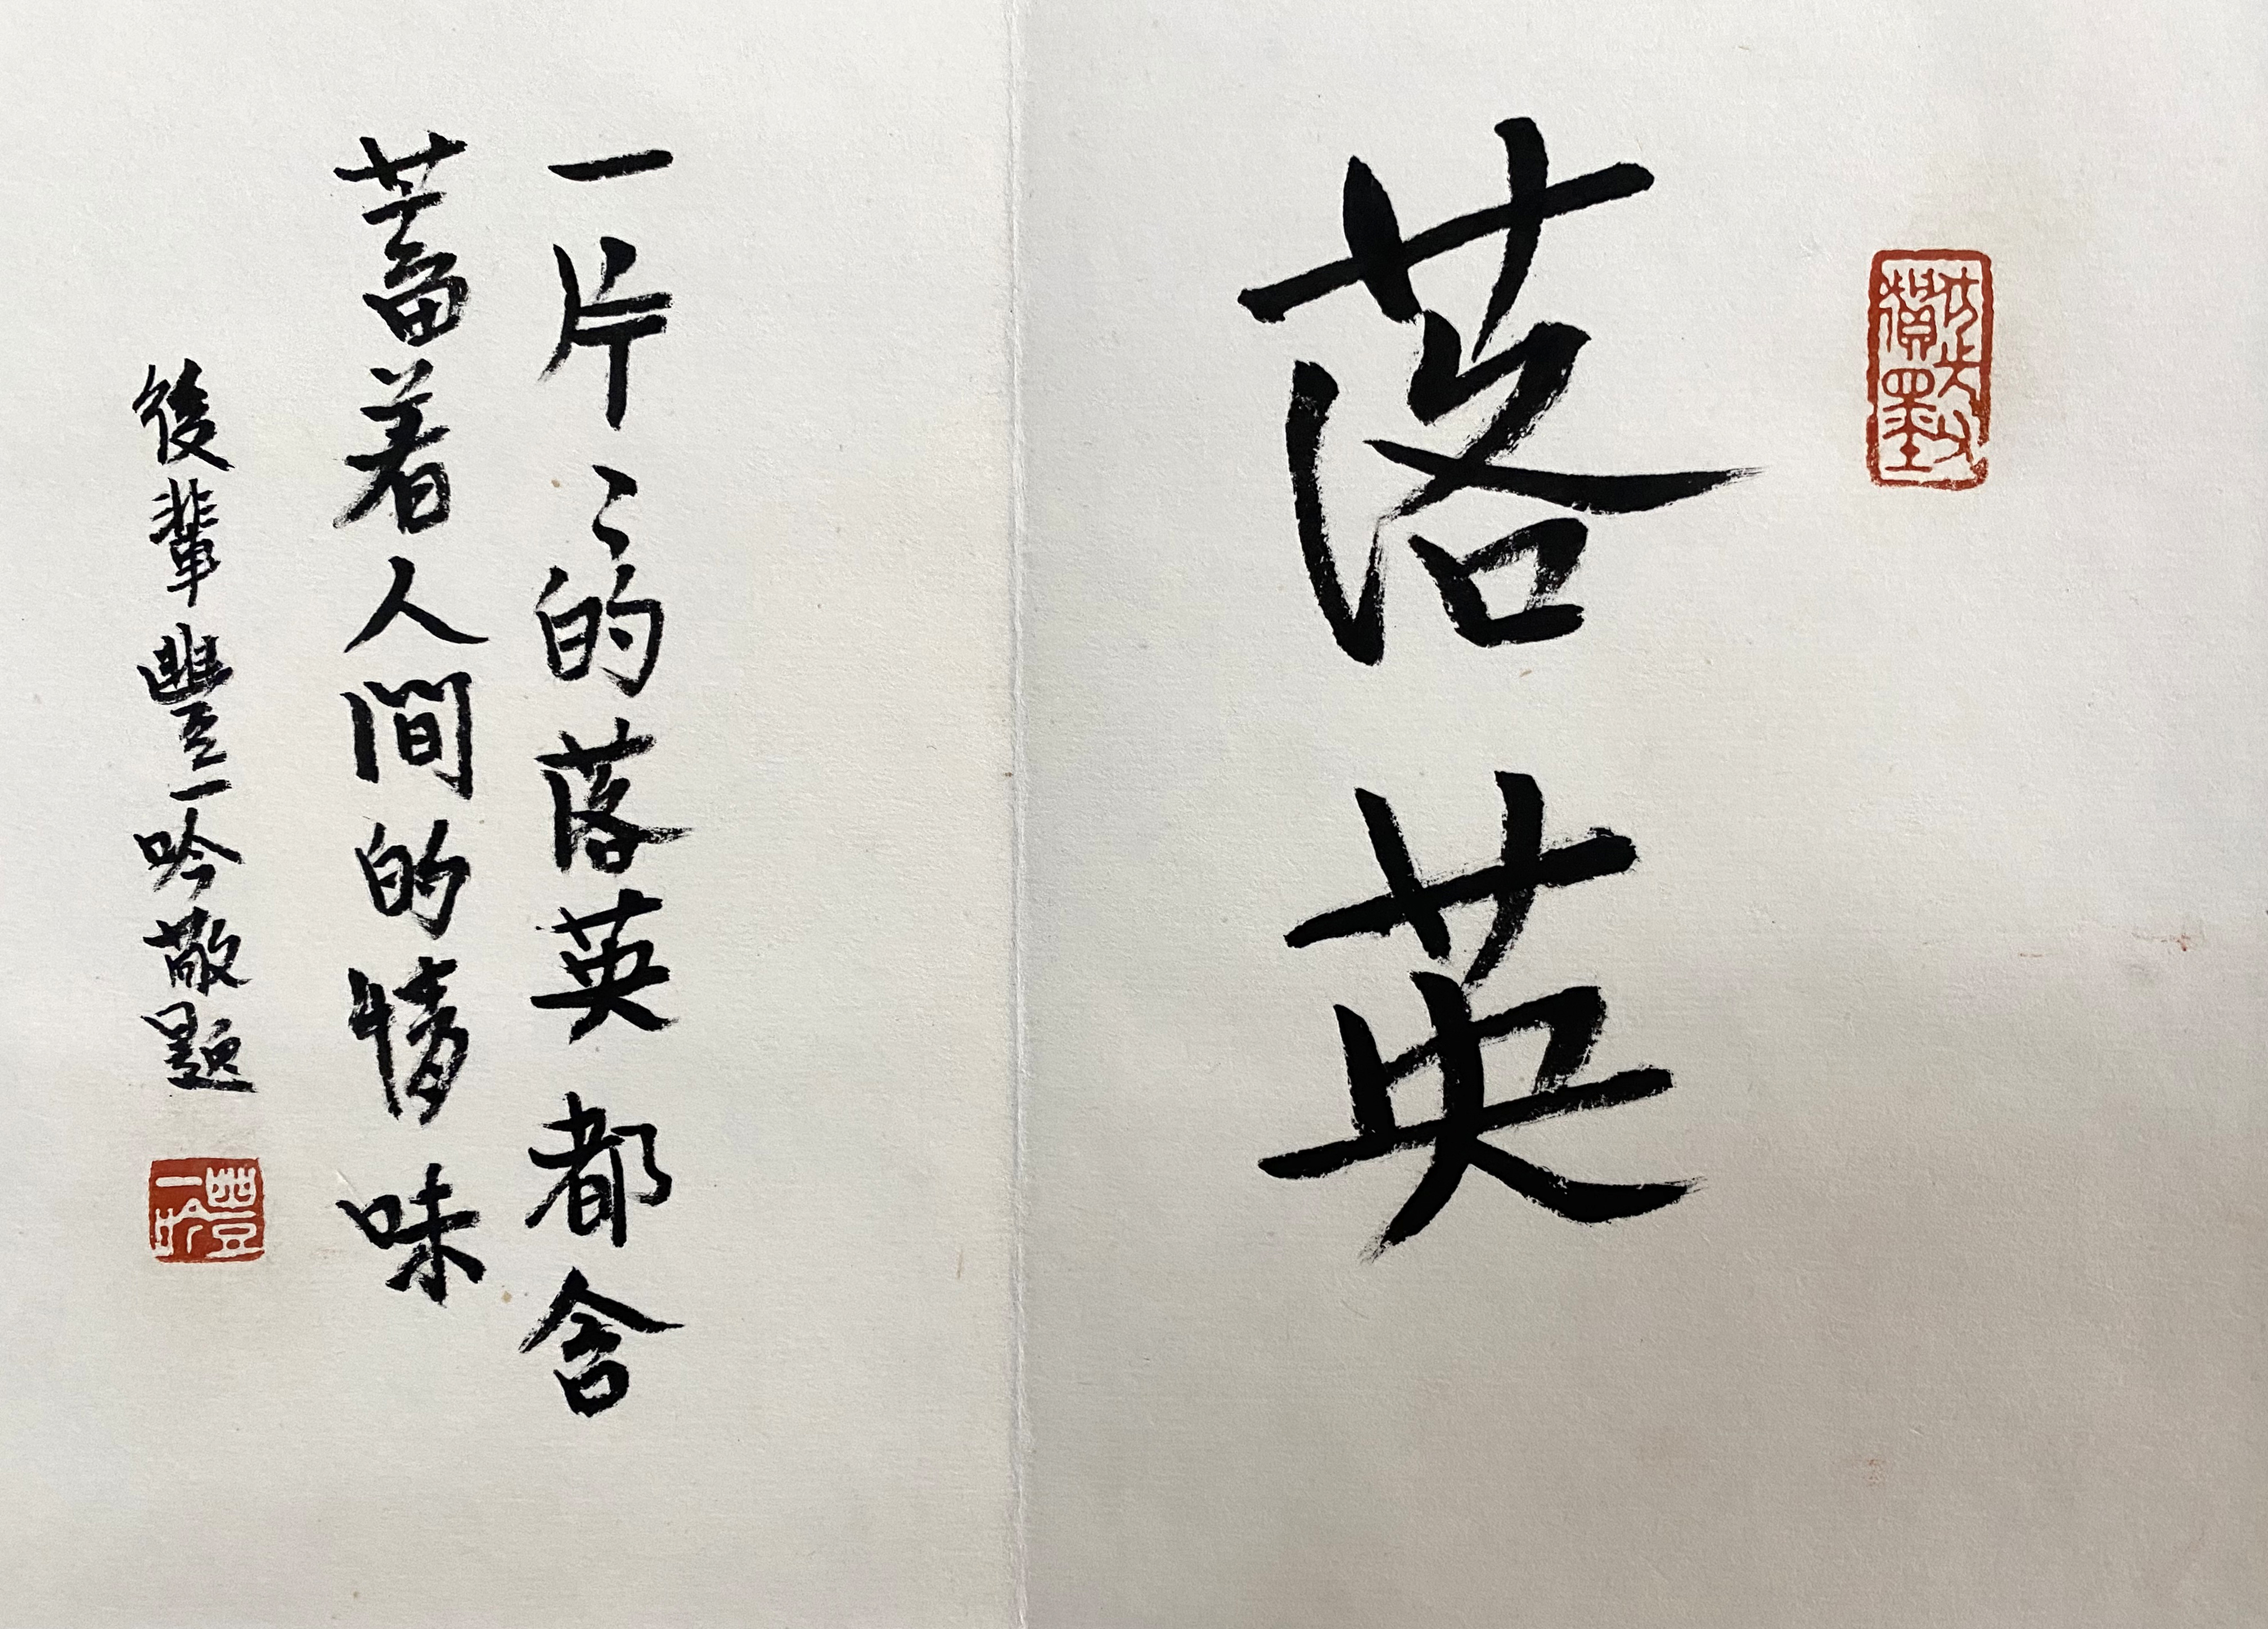 落英
一片〻的落英都含
蓄着人間的情味
後輩豐一吟敬題
豐一吟